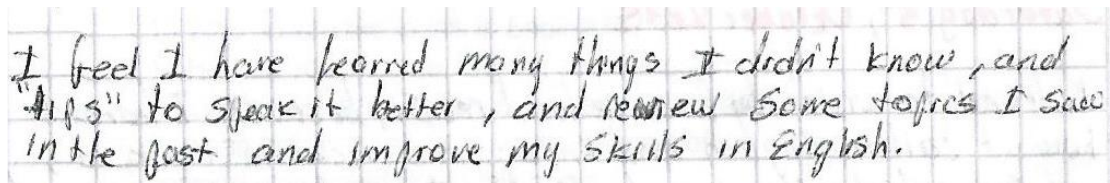 I feel I have learned many things I didn't know, and
"tips" to speak it better, and review some topics I saw
in the past and improve my skills in English.